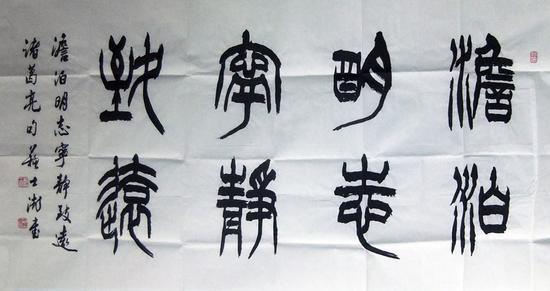 澹泊
明志
寧静
致遠
澹泊明志寧静致遠
諸葛亮句蘇士澍書